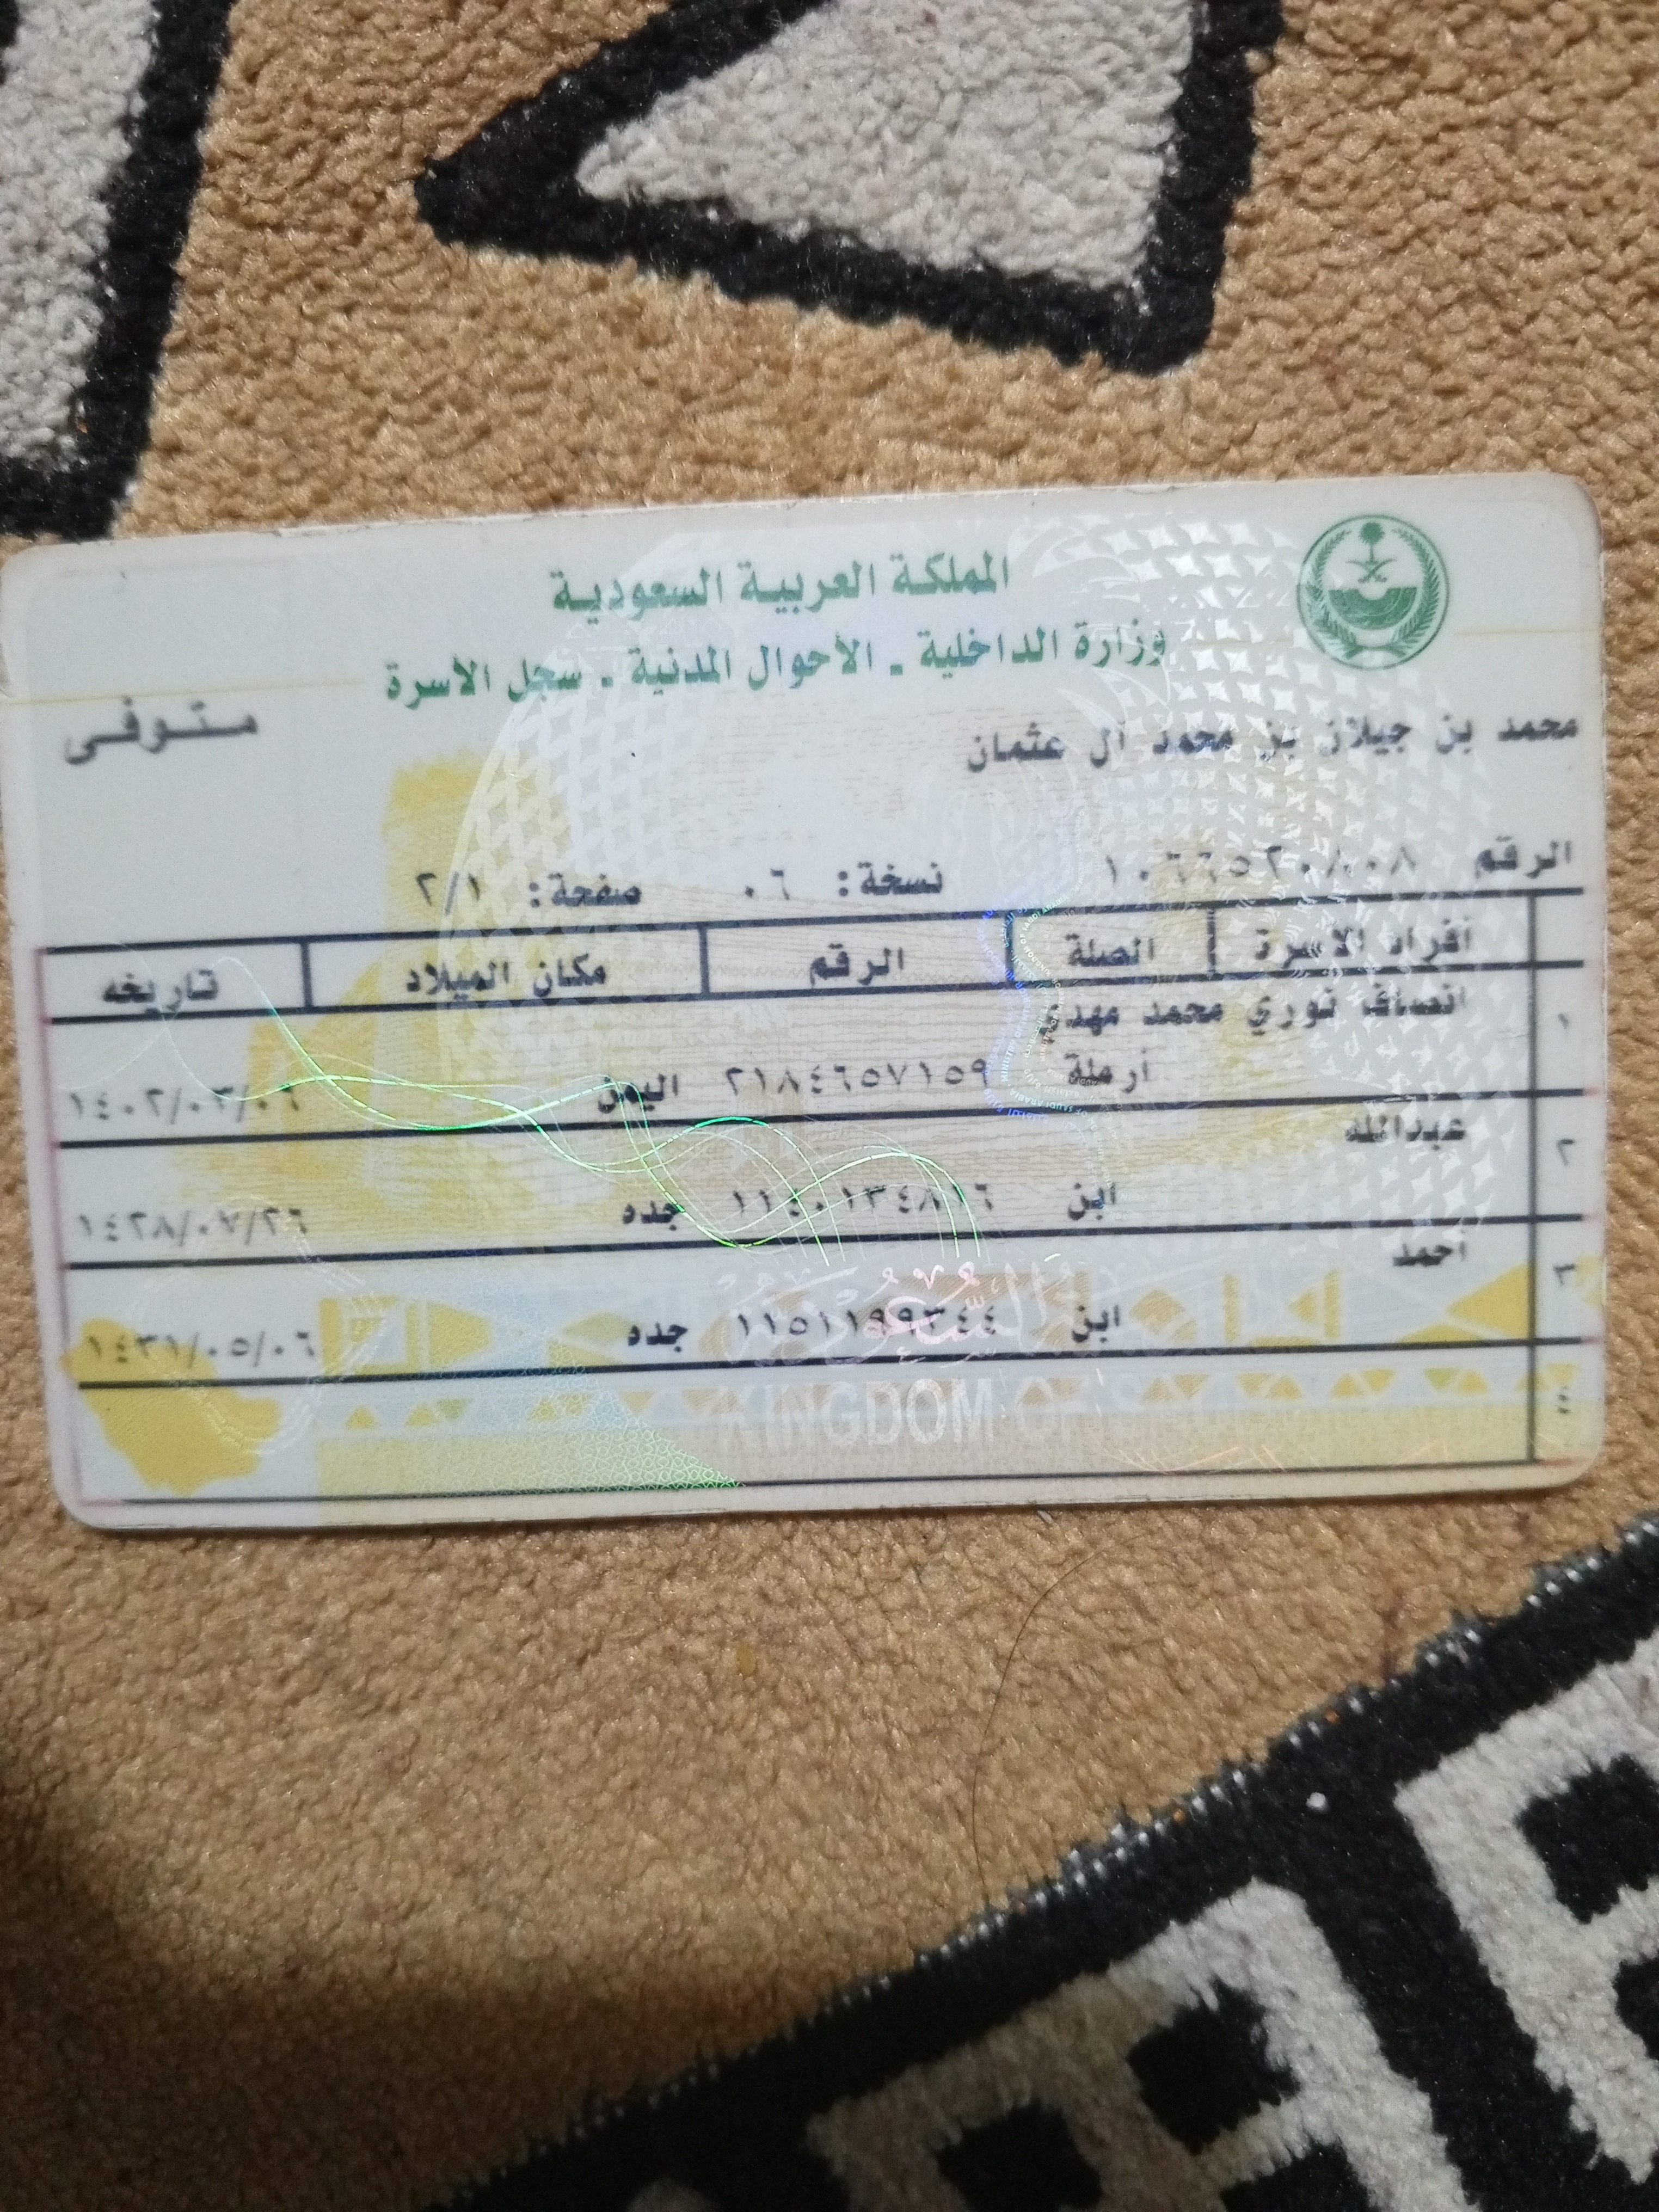 المملكة العربية السعودية
وزارة الداخلية - الأحوال المدنية - سجل الأسرة
متوفى
محمد بن جيلان بن محمد آل عثمان
الرقم ١٠٦٦٥٢٠٨٠٨ نسخة: ٠٦ صفحة: ٢/١
أفراد الاسرة الصلة الرقم مكان الميلاد تاريخه
١ انصاف نوري محمد مهدي
أرملة ٢١٨٤٦٥٧١٥٩ اليمن ١٤٠٢/٠٣/٠٦
٢ عبدالله
ابن ١١٤٠١٣٤٨١٦ جده ١٤٢٨/٠٧/٢٦
٣ احمد
ابن ١١٥١١٩٩٣٤٤ جده ١٤٣١/٠٥/٠٦
٤
KINGDOM OF